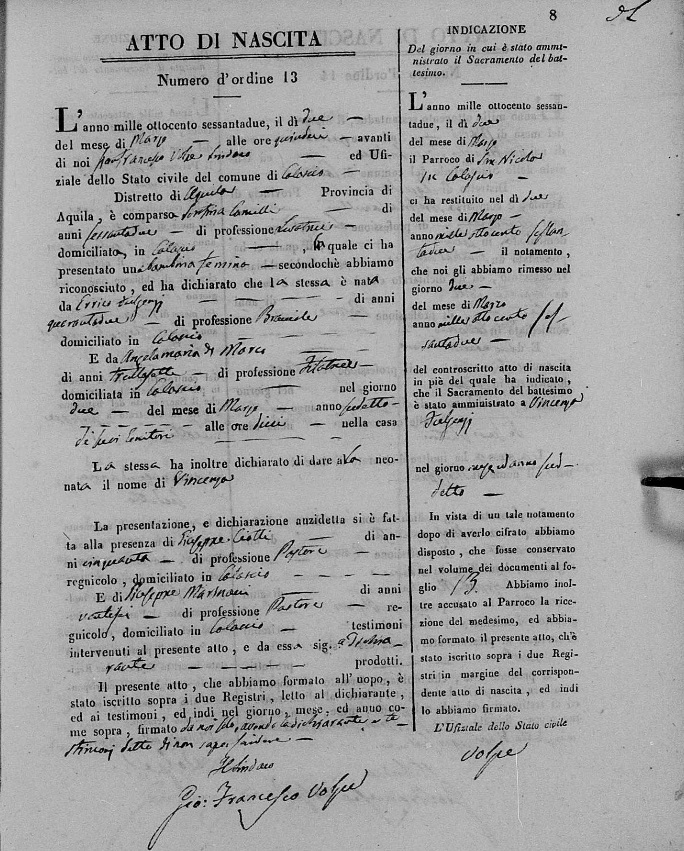 8
ATTO DI NASCITA
Numero d'ordine 13
L'anno mille ottocento sessantadue, il dì due
del mese di Marzo alle ore quindici avanti
di noi Gio: Francesco Volpe Sindaco ed Ufi-
ziale dello Stato civile del comune di
Distretto di Aquila Provincia di
Aquila, è comparsa Camilli di
anni sessantadue di professione Levatrice
domiciliata in , la quale ci ha
presentato una bambina femina secondochè abbiamo
riconosciuto, ed ha dichiarato che la stessa è nata
da Errico di anni
quarantadue di professione Bracciale
domiciliato in
E da Angelamaria di Marco
di anni trentasette di professione Filatrice
domiciliata in nel giorno
due del mese di Marzo anno sudetto
di suoi Genitori alle ore dieci nella casa
La stessa ha inoltre dichiarato di dare alla neo-
nata il nome di Vincenza
La presentazione, e dichiarazione anzidetta si è fat-
ta alla presenza di Giuseppe Ciotti di an-
ni cinquanta di professione Pastore
regnicolo, domiciliato in
E di Giuseppe di anni
ventisei di professione Pastore re-
guicolo, domiciliato in testimoni
intervenuti al presente atto, e da essa sig.a Dichia-
rante prodotti.
Il presente atto, che abbiamo formato all'uopo, è
stato iscritto sopra i due Registri, letto al dichiarante,
ed ai testimoni, ed indi nel giorno, mese, ed anno co-
me sopra, firmato da noi solo, avendo la dichiarante e te-
stimonj detto di non saper scrivere
Il Sindaco
Gio: Francesco Volpe
INDICAZIONE
Del giorno in cui è stato ammi-
nistrato il Sacramento del bat-
tesimo.
L'anno mille ottocento sessan-
tadue, il dì due
del mese di Marzo
il Parroco di San Nicola
in
ci ha restituito nel dì due
del mese di Marzo
anno mille ottocento sessan
tadue il notamento,
che noi gli abbiamo rimesso nel
giorno due
del mese di Marzo
anno mille ottocento ses-
santadue
del controscritto atto di nascita
in piè del quale ha indicato,
che il Sacramento del battesimo
è stato amministrato a Vincenza
nel giorno mese ed anno sud-
detto
In vista di un tale notamento
dopo di averlo cifrato abbiamo
disposto, che fosse conservato
nel volume dei documenti al fo-
glio 13. Abbiamo inol-
tre accusato al Parroco la rice-
zione del medesimo, ed abbia-
mo formato il presente atto, ch'è
stato iscritto sopra i due Regi-
stri in margine del corrispon-
dente atto di nascita, ed indi
lo abbiamo firmato.
L'Ufiziale dello Stato civile
Volpe